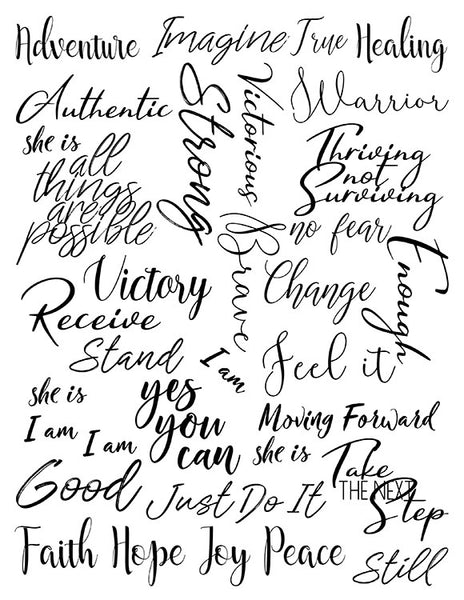 Adventure Imagine True Healing
Authentic
Strong
Victorious
Warrior
she is
all
things
are
possible
Thriving
not
Surviving
Brave
no fear
Enough
Victory
Change
Receive
Stand
I am
Feel it
she is
yes
you
can
Moving Forward
I am
I am
she is
Take
THE NEXT
Step
Good
Just Do It
Faith Hope Joy Peace
Still